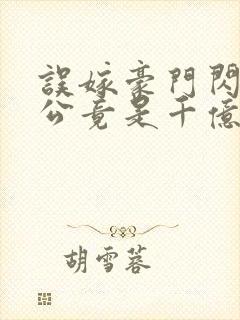 誤嫁豪門閃
公竟是千億
胡雪蓉